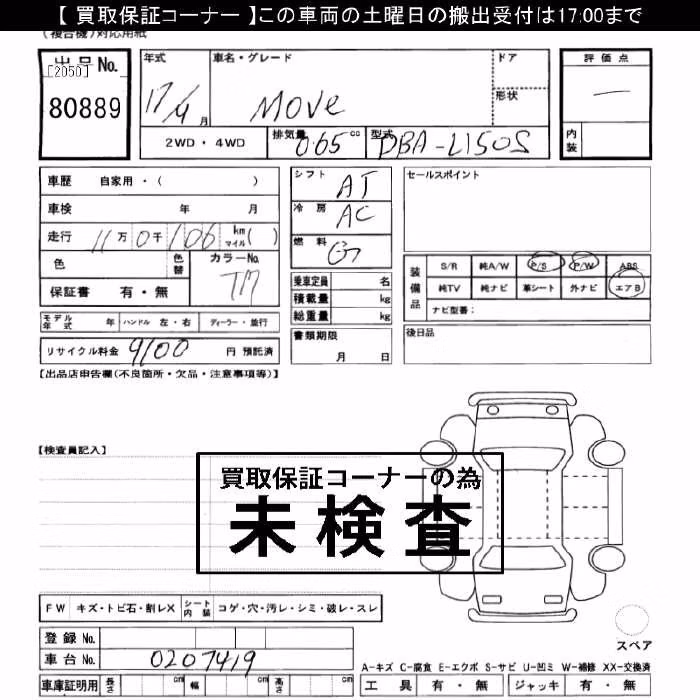 【 買取保証コーナー 】この車両の土曜日の搬出受付は17:00まで
(複合機)対応用紙
出品No. 年式 車名・グレード ドア 評価点
[2050]
80889 17/4 月 MOVE 形状 一
2WD・4WD 排気量 065 cc 型式 DBA-L150S 内装
車歴 自家用・( ) シフト AT セールスポイント
車検 年 月 冷房 AC
走行 11万0千106 km マイル( ) 燃料 G
色 色替 カラーNo. 装備品 S/R 純A/W P/S P/W ABS
TM 乗車定員 名
保証書 有・無 積載量 kg 純TV 純ナビ 革シート 外ナビ エアB
総重量 kg ナビ型番:
モデル年式 年 ハンドル 左・右 ディーラー・並行 書類期限 後日品
リサイクル料金 9100 円 預託済 月 日
【出品店申告欄(不良箇所・欠品・注意事項等)】
【検査員記入】
買取保証コーナーの為
未検査
FW キズ・トビ石・割レX シート内装 コゲ・穴・汚レ・シミ・破レ・スレ
登録No.
スペア
車台No. 0207419
A-キズ C-腐食 E-エクボ S-サビ U-凹ミ W-補修 XX-交換済
車庫証明用 長さ cm 幅 cm 高さ cm 工具 有・無 ジャッキ 有・無